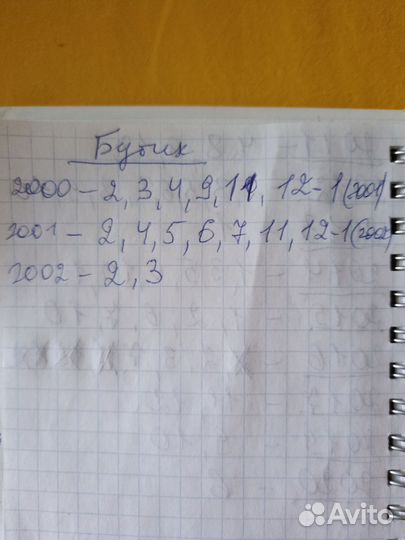 Бутик
2000 – 2, 3, 4, 9, 11, 12-1(2001)
2001 – 2, 4, 5, 6, 7, 11, 12-1(2002)
2002 – 2, 3
Avito